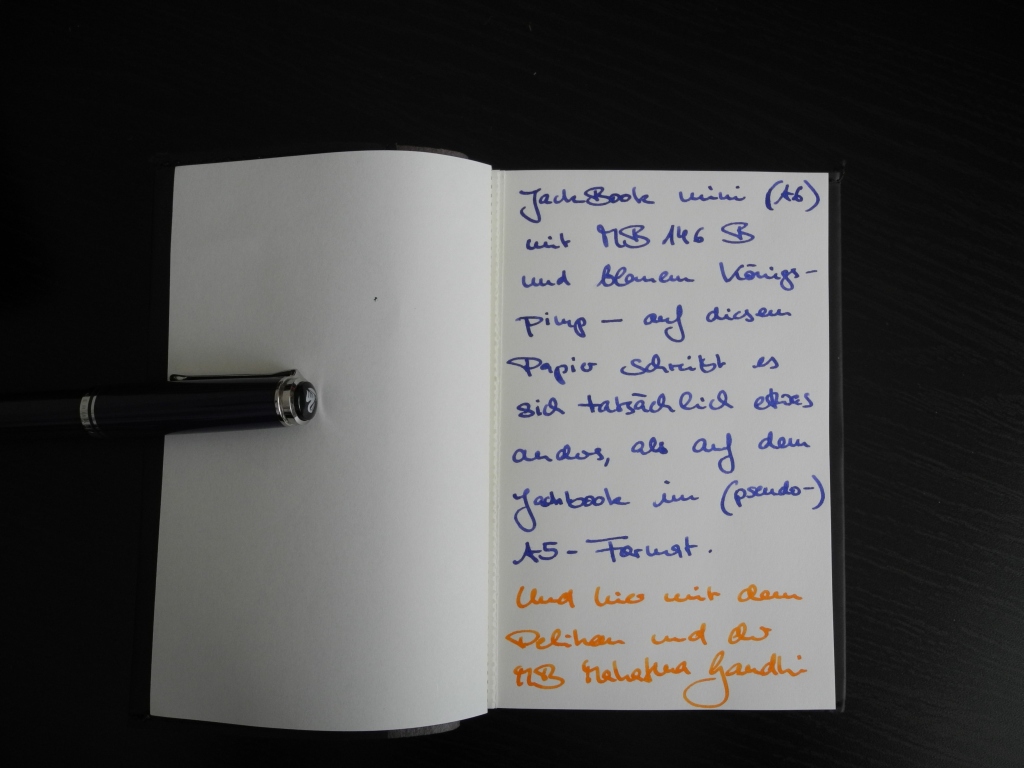 JackBook mini (A6)
mit MB 146 B
und blauem Königs-
pimp - auf diesem
Papier schreibt es
sich tatsächlich etwas
anders, als auf dem
Jackbook im (pseudo-)
A5-Format.
Und hier mit dem
Pelikan und der
MB Mahatma Gandhi